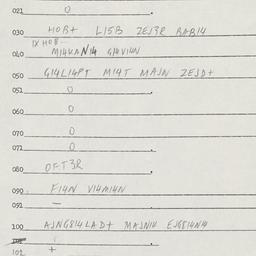 021 0
030 HOB+ L15B ZEJ3R BABI4
IX HOB-
040 MI4KANI4 GI4VI4N
050 GI4LI4PT MI4T MAJN ZEJD+
051 0
060 0
070 0
071 0
080 OFT3R
090 FI4N VI4MI4N
091 –
100 AJNG8I4LAD+ MAJNI4 EJG8I4NI4
102 +